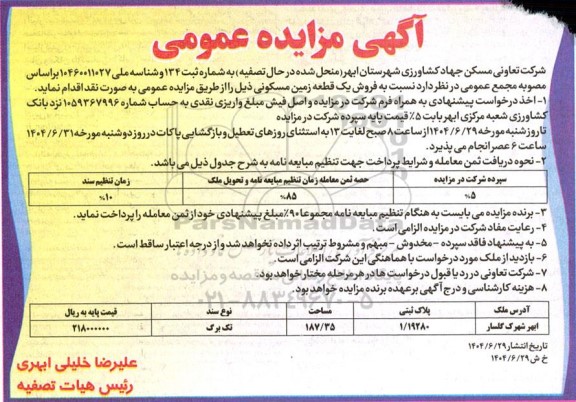 آگهی مزایده عمومی
شرکت تعاونی مسکن جهاد کشاورزی شهرستان ابهر (منحل شده در حال تصفیه) به شماره ثبت ۱۳۴ و شناسه ملی ۱۰۴۶۰۰۱۱۰۲۷ براساس
مصوبه مجمع عمومی در نظر دارد نسبت به فروش یک قطعه زمین مسکونی ذیل را از طریق مزایده عمومی به صورت نقد اقدام نماید.
۱- اخذ درخواست پیشنهادی به همراه فرم شرکت در مزایده و اصل فیش مبلغ واریزی نقدی به حساب شماره ۱۰۵۹۳۶۷۹۹۶ نزد بانک
کشاورزی شعبه مرکزی ابهر بابت ۵٪ قیمت پایه سپرده شرکت در مزایده
تا روز شنبه مورخه ۱۴۰۴/۶/۲۹ از ساعت ۸ صبح لغایت ۱۳ به استثنای روزهای تعطیل و بازگشایی پاکات در روز دوشنبه مورخه ۱۴۰۴/۶/۳۱
ساعت ۶ عصر انجام می پذیرد.
۲- نحوه دریافت ثمن معامله و شرایط پرداخت جهت تنظیم مبایعه نامه به شرح جدول ذیل می باشد.
سپرده شرکت در مزایده حصه ثمن معامله زمان تنظیم مبایعه نامه و تحویل ملک زمان تنظیم سند
۵٪ ۸۵٪ ۱۰٪
۳- برنده مزایده می بایست به هنگام تنظیم مبایعه نامه مجموعا ۹۰٪ مبلغ پیشنهادی خود از ثمن معامله را پرداخت نماید.
۴- رعایت مفاد شرکت در مزایده الزامی است.
۵- به پیشنهاد فاقد سپرده - مخدوش - مبهم و مشروط ترتیب اثر داده نخواهد شد و از درجه اعتبار ساقط است.
۶- بازدید از ملک مورد درخواست با هماهنگی این شرکت الزامی است.
۷- شرکت تعاونی در رد یا قبول درخواست ها در هر مرحله مختار خواهد بود.
۸- هزینه کارشناسی و درج آگهی بر عهده برنده مزایده خواهد بود.
آدرس ملک پلاک ثبتی مساحت نوع سند قیمت پایه به ریال
ابهر شهرک گلسار ۱/۱۹۲۸۰ ۱۸۷/۳۵ تک برگ ۲۱۸۰۰۰۰۰۰
تاریخ انتشار ۱۴۰۴/۶/۲۹
خ ش ۱۴۰۴/۶/۲۹
علیرضا خلیلی ابهری
رئیس هیات تصفیه
ParsNamadData
۰۲۱-۸۸۳۴۹۶۷۰-۵